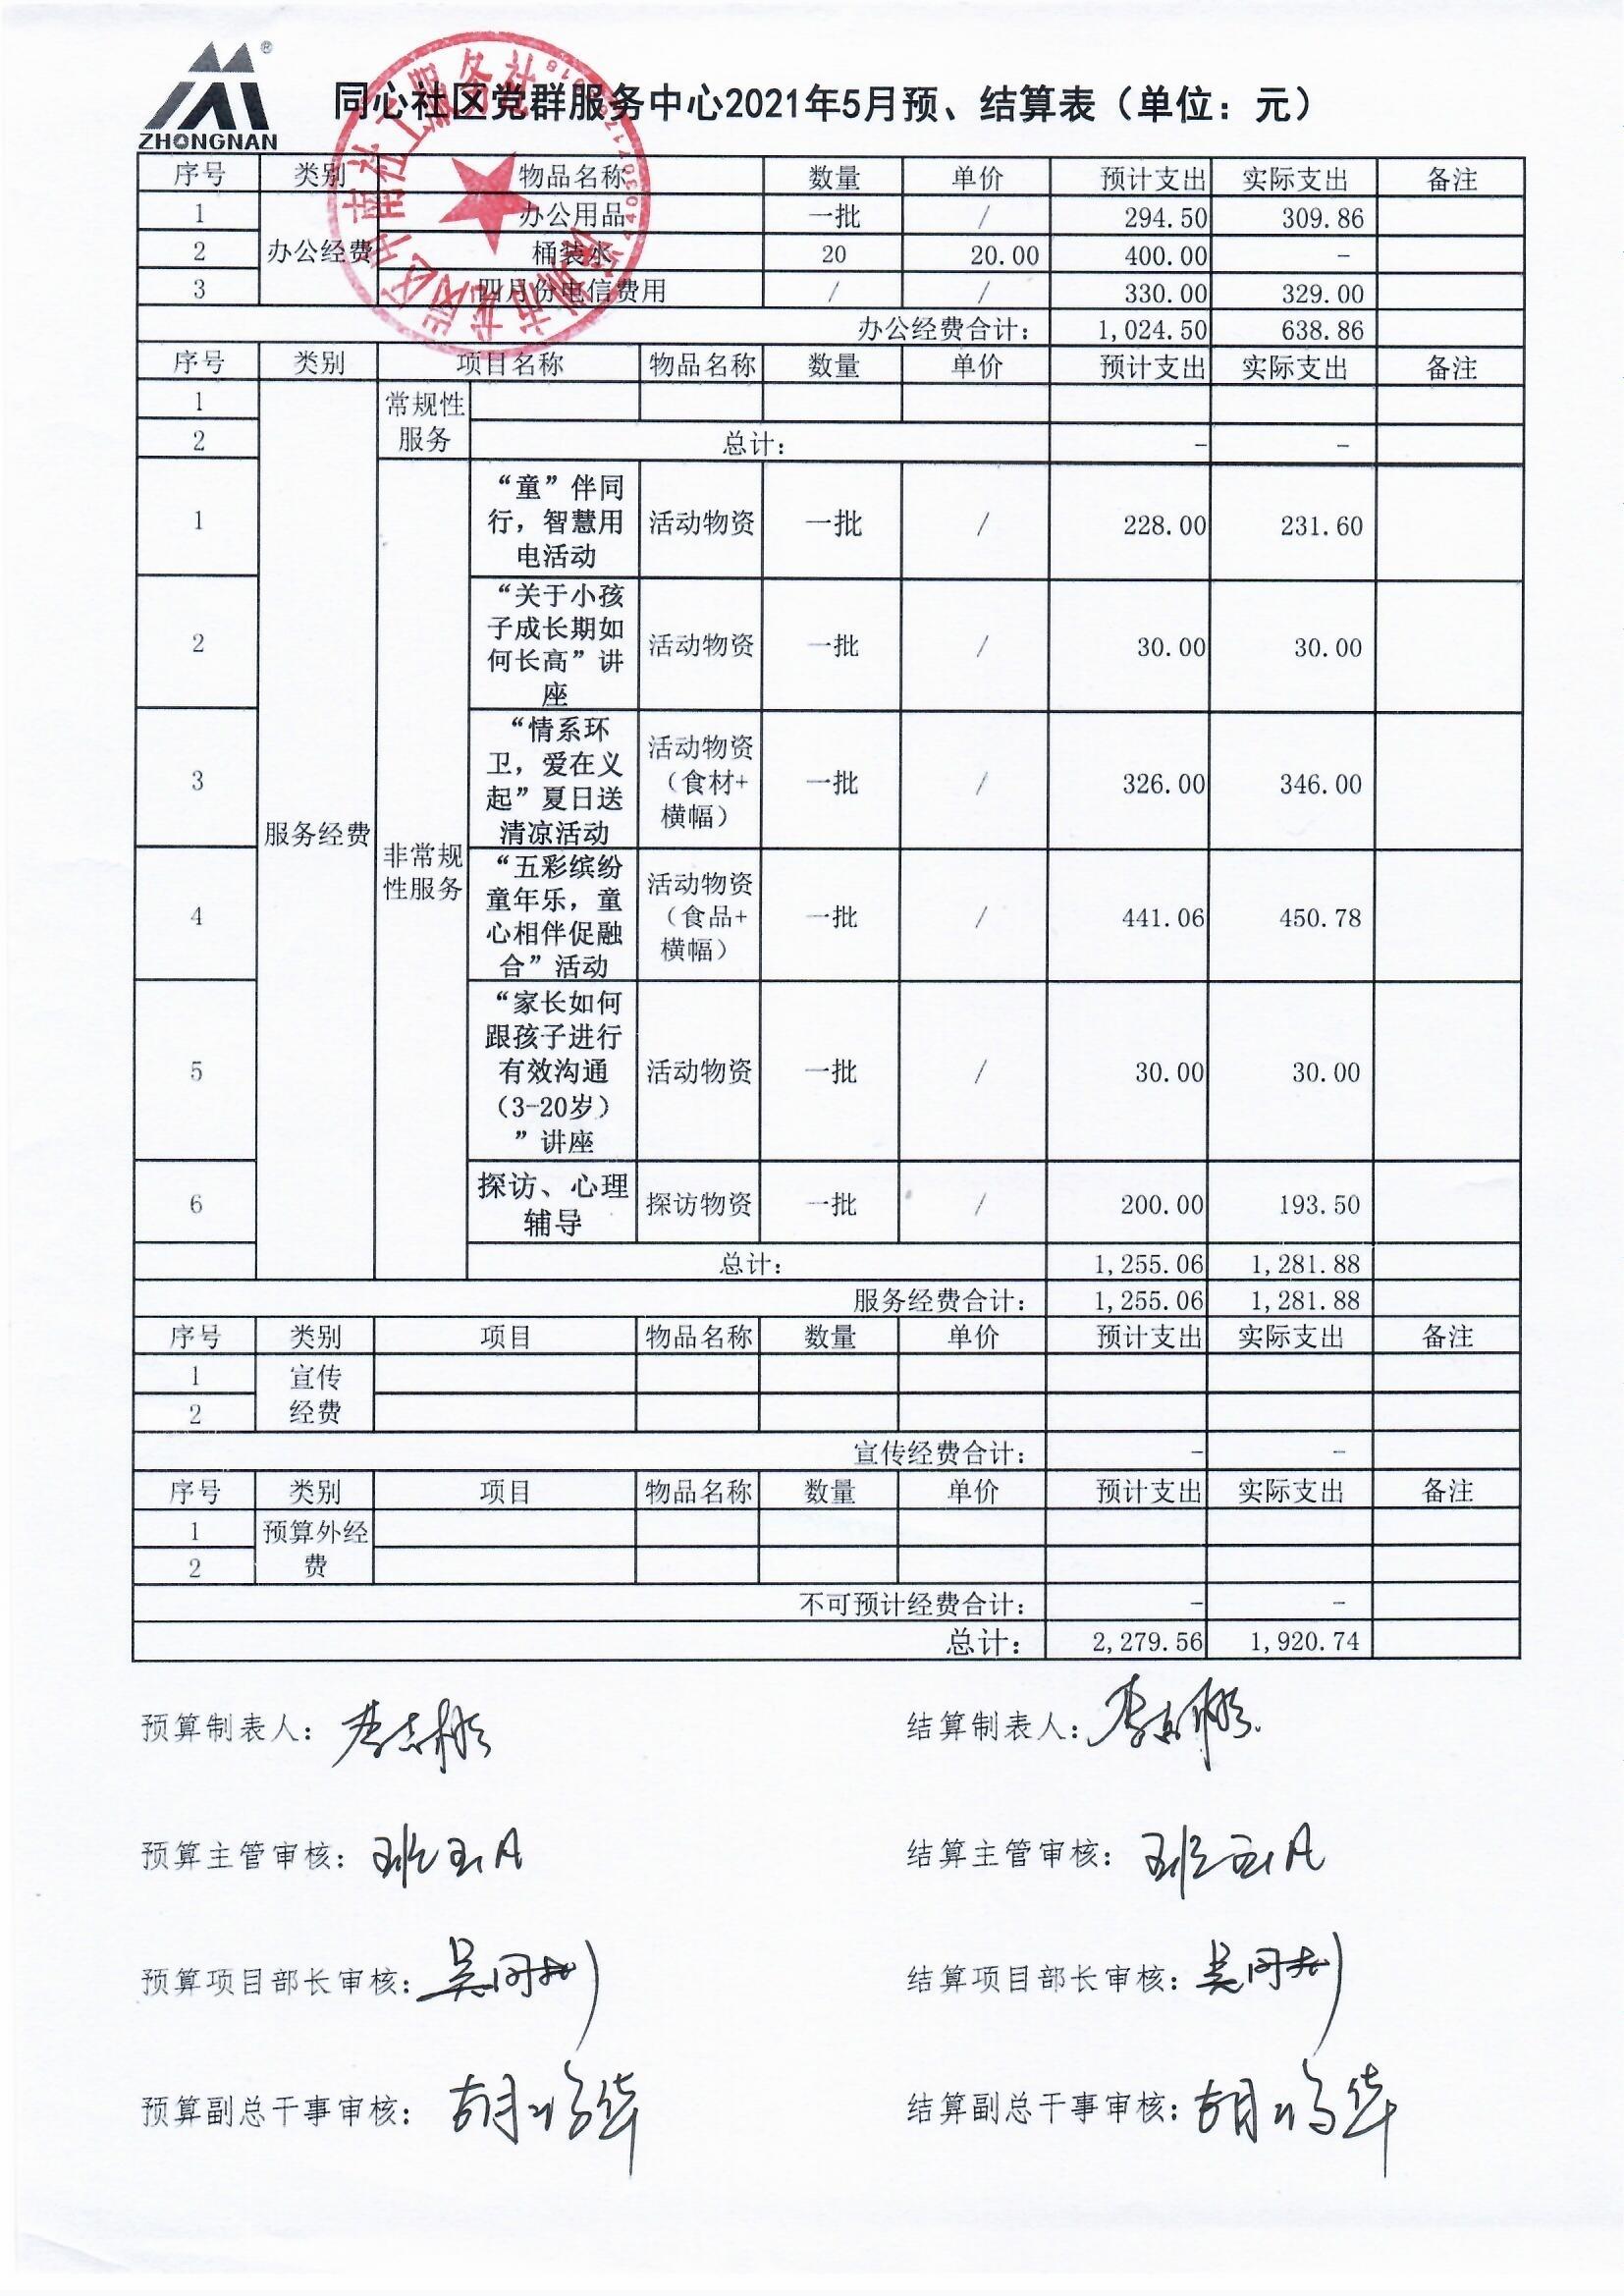 ZHONGNAN
同心社区党群服务中心2021年5月预、结算表（单位：元）
序号 类别 物品名称 数量 单价 预计支出 实际支出 备注
1 办公用品 一批 / 294.50 309.86
2 办公经费 桶装水 20 20.00 400.00 -
3 四月份电信费用 / / 330.00 329.00
办公经费合计： 1,024.50 638.86
序号 类别 项目名称 物品名称 数量 单价 预计支出 实际支出 备注
1 常规性
2 服务 总计： - -
“童”伴同
1 行，智慧用 活动物资 一批 / 228.00 231.60
电活动
“关于小孩
子成长期如
2 何长高”讲 活动物资 一批 / 30.00 30.00
座
“情系环 活动物资
3 卫，爱在义 （食材+ 一批 / 326.00 346.00
起”夏日送 横幅）
清凉活动
服务经费
非常规
性服务
“五彩缤纷 活动物资
4 童年乐，童 （食品+ 一批 / 441.06 450.78
心相伴促融 横幅）
合”活动
“家长如何
跟孩子进行
5 有效沟通 活动物资 一批 / 30.00 30.00
（3-20岁）
”讲座
6 探访、心理 探访物资 一批 / 200.00 193.50
辅导
总计： 1,255.06 1,281.88
服务经费合计： 1,255.06 1,281.88
序号 类别 项目 物品名称 数量 单价 预计支出 实际支出 备注
1 宣传
2 经费
宣传经费合计： - -
序号 类别 项目 物品名称 数量 单价 预计支出 实际支出 备注
1 预算外经
2 费
不可预计经费合计： - -
总计： 2,279.56 1,920.74
预算制表人： 结算制表人：
预算主管审核： 结算主管审核：
预算项目部长审核： 结算项目部长审核：
预算副总干事审核： 结算副总干事审核：